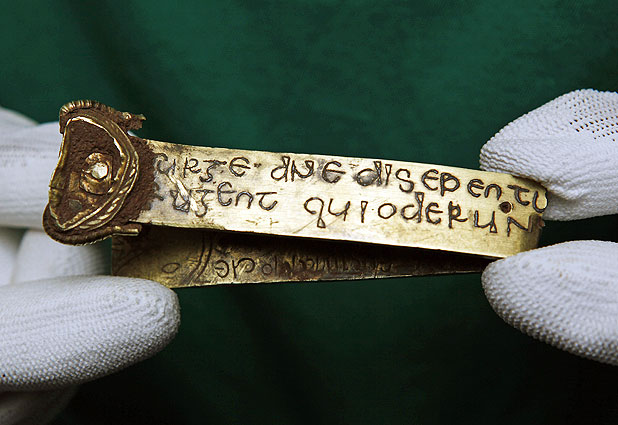 urge· dne·disepentu
ugent qui·oderun